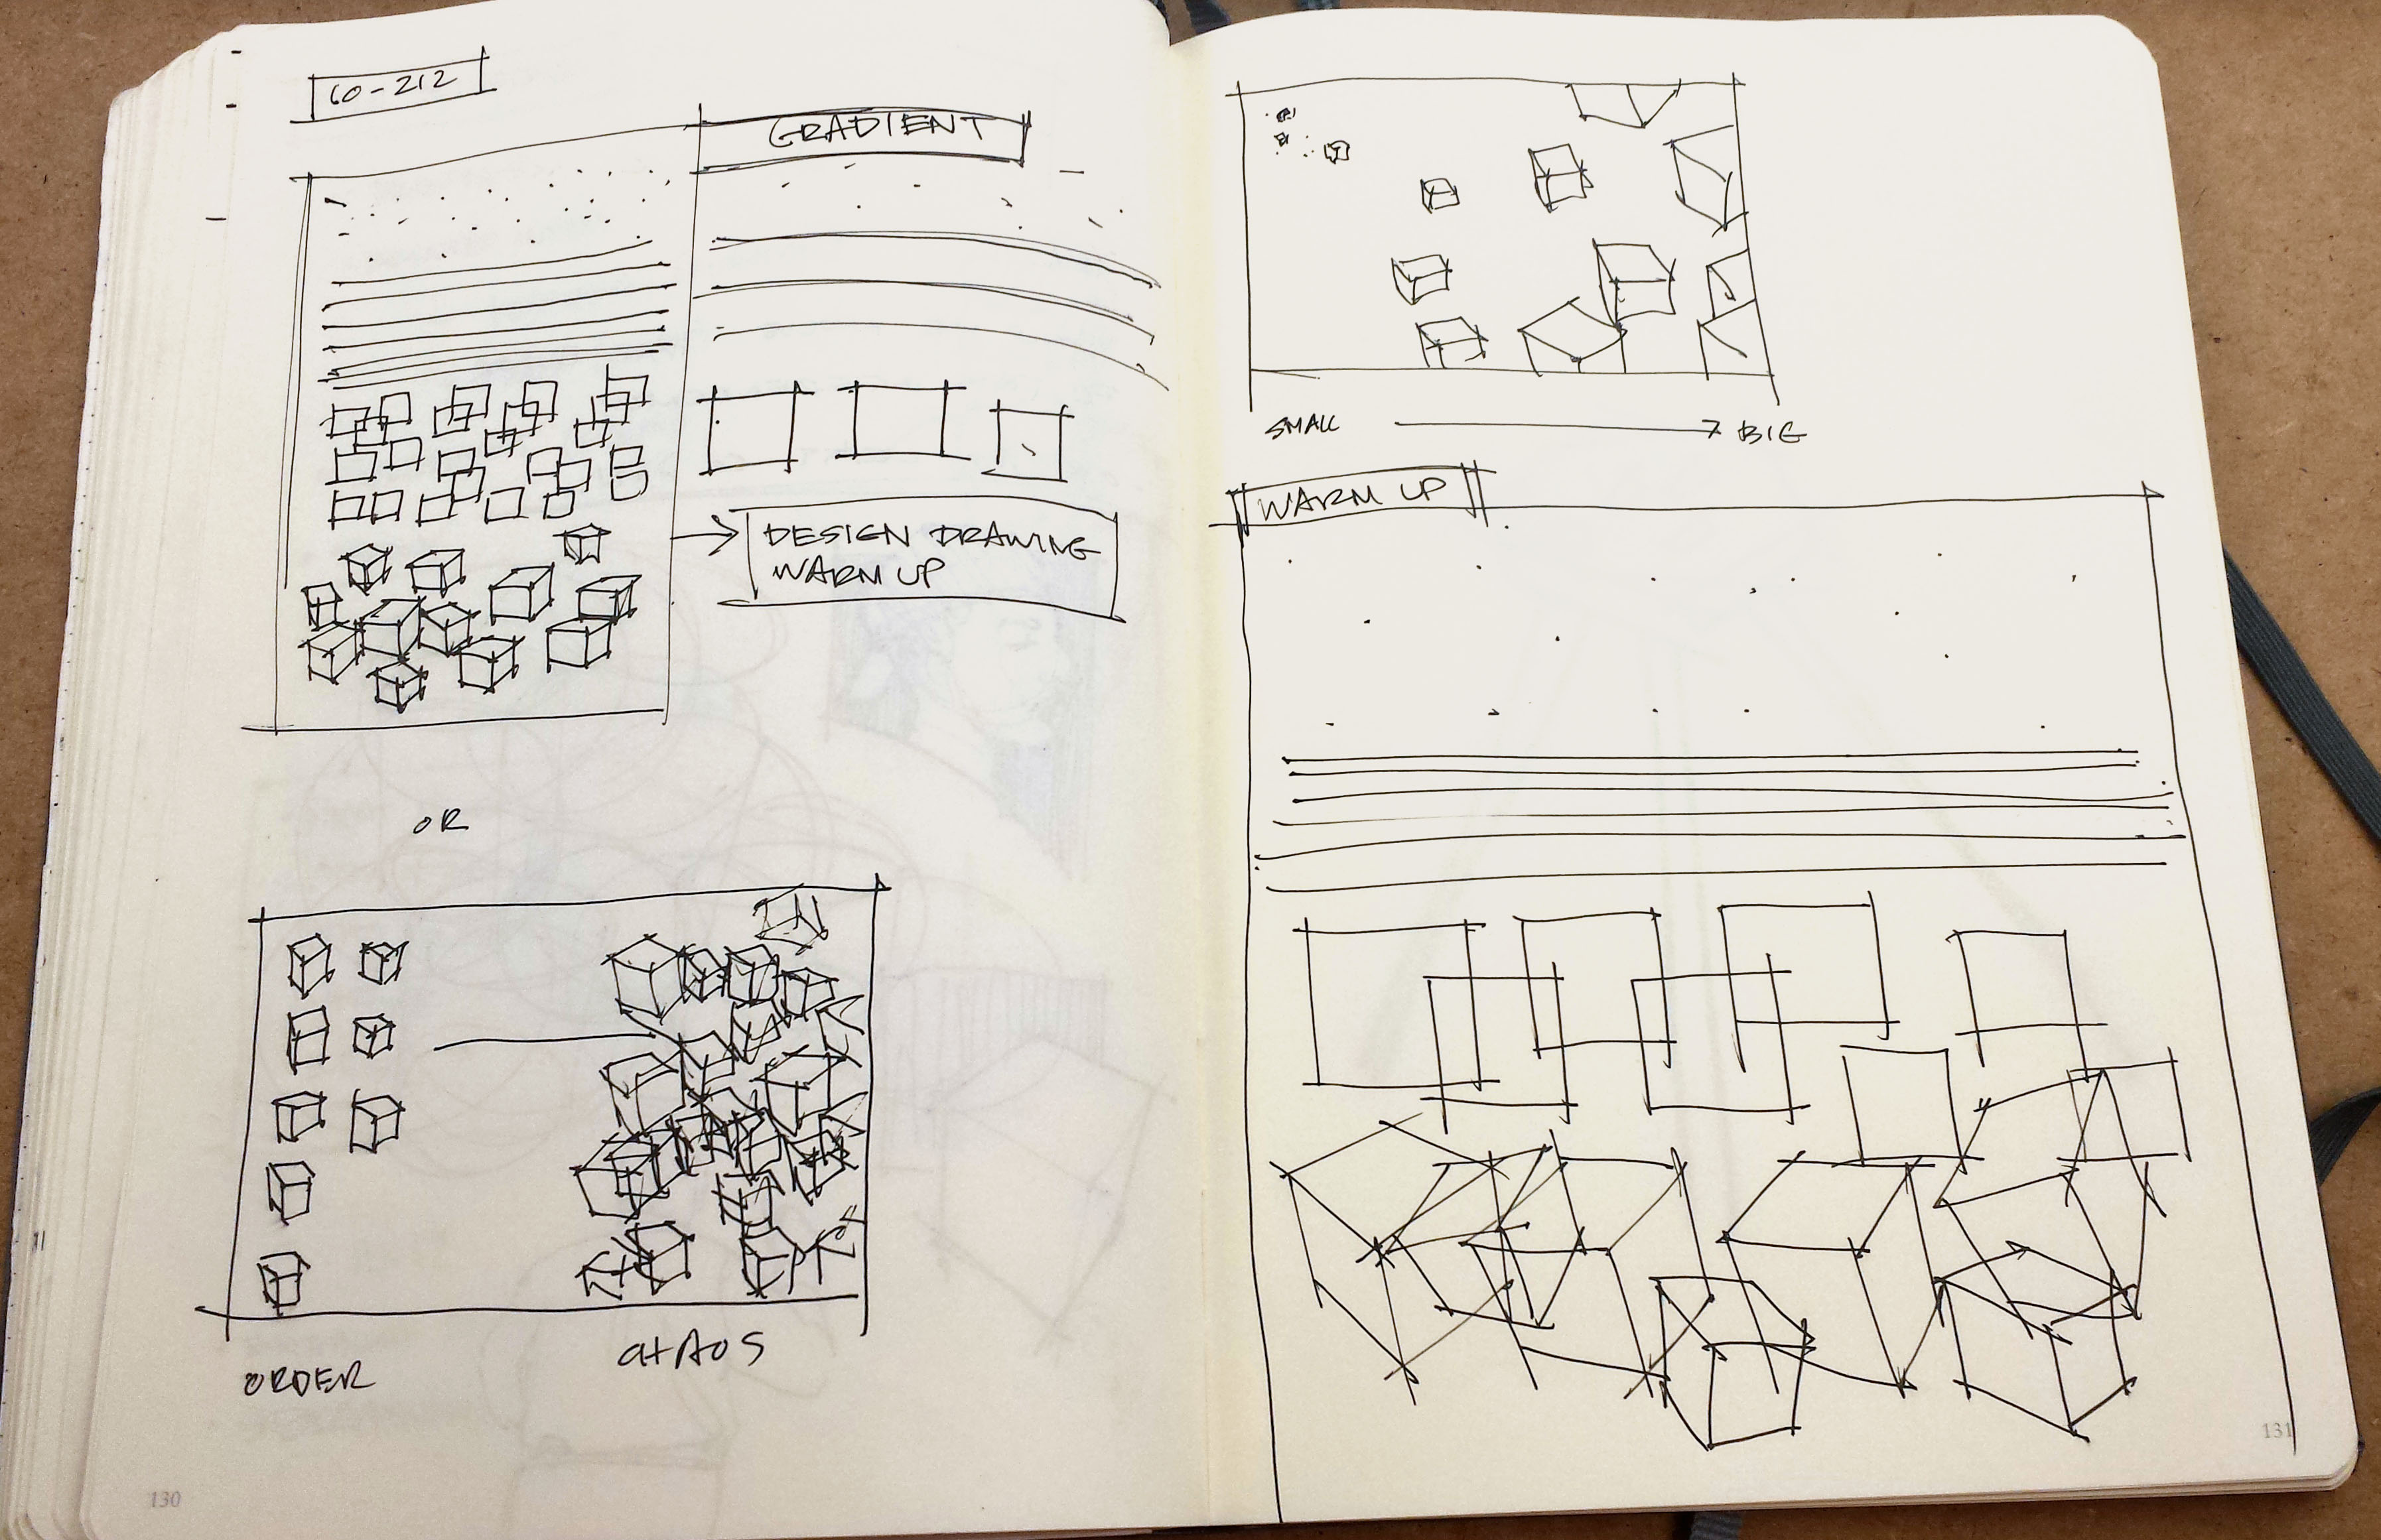 60-212
GRADIENT
DESIGN DRAWING
WARM UP
OR
ORDER
CHAOS
130
SMALL
BIG
WARM UP
131